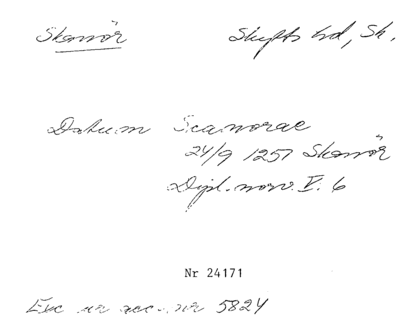 Skanör Skytts hd, Sk.
Datum Scanorae
24/9 1257 Skanör
Dipl. norv. V. 6
Nr 24171
Exc ur acc. nr 5824